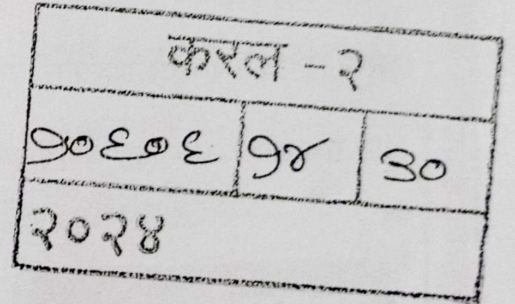 करल - २
१०६०६ १४ ३०
२०२४